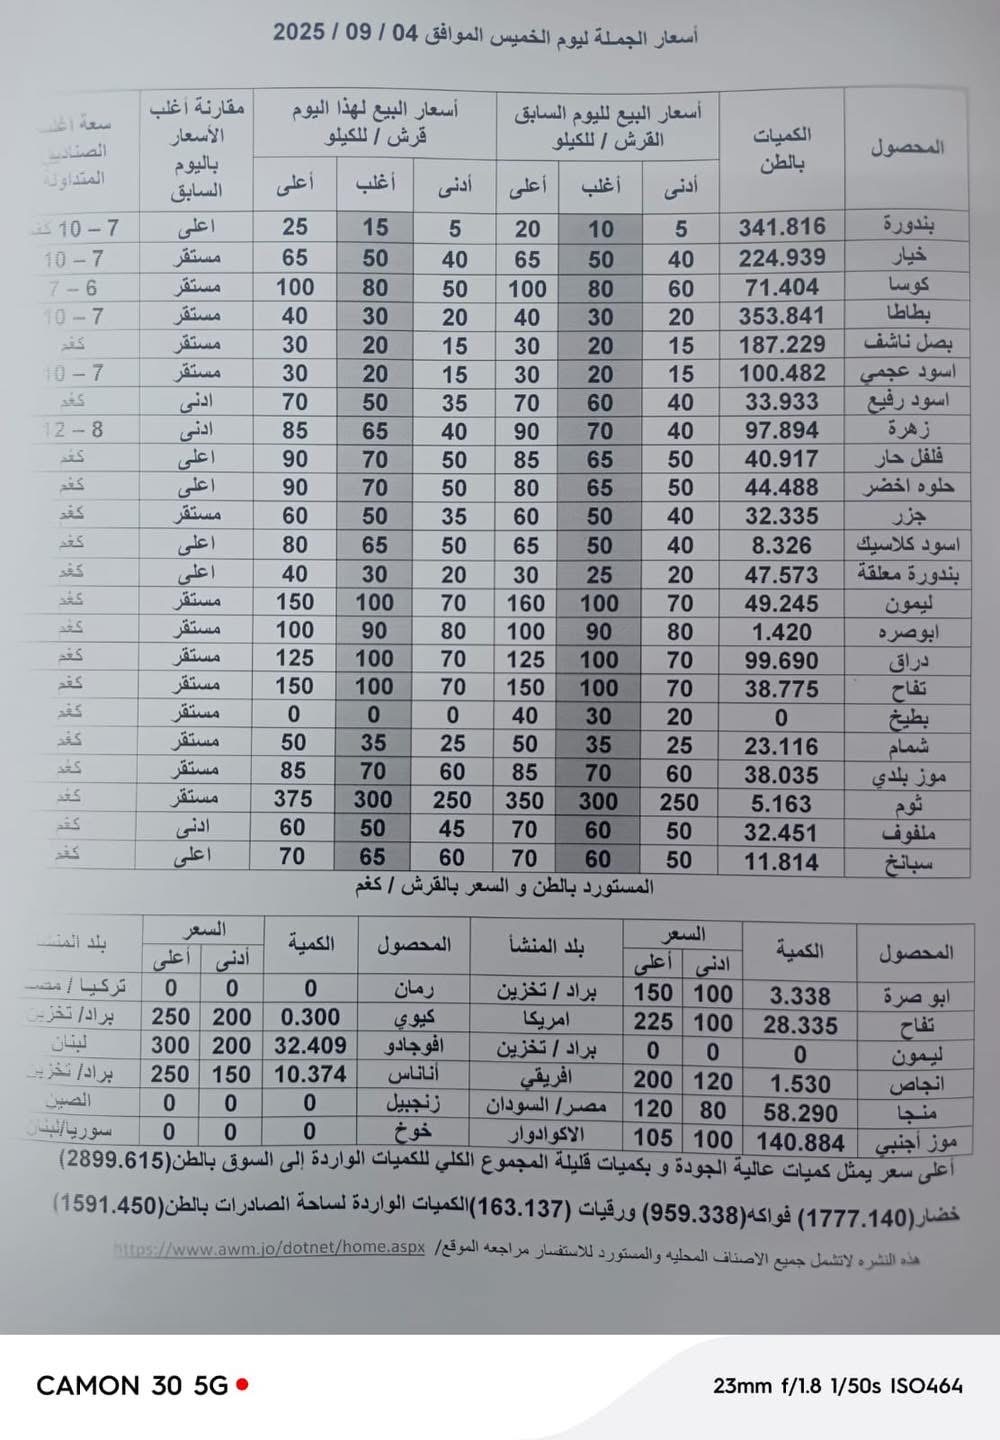 أسعار الجملة ليوم الخميس الموافق 04 / 09 / 2025
المحصول الكميات بالطن أسعار البيع لليوم السابق القرش / للكيلو أسعار البيع لهذا اليوم قرش / للكيلو مقارنة أغلب الأسعار باليوم السابق سعة الصناديق المتداولة
أدنى أغلب أعلى أدنى أغلب أعلى
بندورة 341.816 5 10 20 5 15 25 اعلى 7 – 10
خيار 224.939 40 50 65 40 50 65 مستقر 7 – 10
كوسا 71.404 60 80 100 50 80 100 مستقر 6 – 7
بطاطا 353.841 20 30 40 20 30 40 مستقر 7 – 10
بصل ناشف 187.229 15 20 30 15 20 30 مستقر كغم
اسود عجمي 100.482 15 20 30 15 20 30 مستقر 7 – 10
اسود رفيع 33.933 40 60 70 35 50 70 ادنى كغم
زهرة 97.894 40 70 90 40 65 85 ادنى 8 – 12
فلفل حار 40.917 50 65 85 50 70 90 اعلى كغم
حلوه اخضر 44.488 50 65 80 50 70 90 اعلى كغم
جزر 32.335 40 50 60 35 50 60 مستقر كغم
اسود كلاسيك 8.326 40 50 65 50 65 80 اعلى كغم
بندورة معلقة 47.573 20 25 30 20 30 40 اعلى كغم
ليمون 49.245 70 100 160 70 100 150 مستقر كغم
ابوصره 1.420 80 90 100 80 90 100 مستقر كغم
دراق 99.690 70 100 125 70 100 125 مستقر كغم
تفاح 38.775 70 100 150 70 100 150 مستقر كغم
بطيخ 0 20 30 40 0 0 0 مستقر كغم
شمام 23.116 25 35 50 25 35 50 مستقر كغم
موز بلدي 38.035 60 70 85 60 70 85 مستقر كغم
ثوم 5.163 250 300 350 250 300 375 مستقر كغم
ملفوف 32.451 50 60 70 45 50 60 ادنى كغم
سبانخ 11.814 50 60 70 60 65 70 اعلى كغم
المستورد بالطن و السعر بالقرش / كغم
المحصول الكمية السعر بلد المنشأ المحصول الكمية السعر بلد
ادنى أعلى أدنى أعلى
ابو صرة 3.338 100 150 براد / تخزين رمان 0 0 0 تركيا /
تفاح 28.335 100 225 امريكا كيوي 0.300 200 250 براد/ تخزين
ليمون 0 0 0 براد / تخزين افوجادو 32.409 200 300 لبنان
انجاص 1.530 120 200 افريقي أناناس 10.374 150 250 براد/ تخزين
منجا 58.290 80 120 مصر/ السودان زنجبيل 0 0 0 الصين
موز أجنبي 140.884 100 105 الاكوادوار خوخ 0 0 0 سوريا/لبنان
أعلى سعر يمثل كميات عالية الجودة و بكميات قليلة المجموع الكلي للكميات الواردة إلى السوق بالطن(2899.615)
خضار(1777.140) فواكه(959.338) ورقيات (163.137)الكميات الواردة لساحة الصادرات بالطن(1591.450)
هذه النشره لاتشمل جميع الاصناف المحليه والمستورد للاستفسار مراجعه الموقع/ https://www.awm.jo/dotnet/home.aspx
CAMON 30 5G 23mm f/1.8 1/50s ISO464